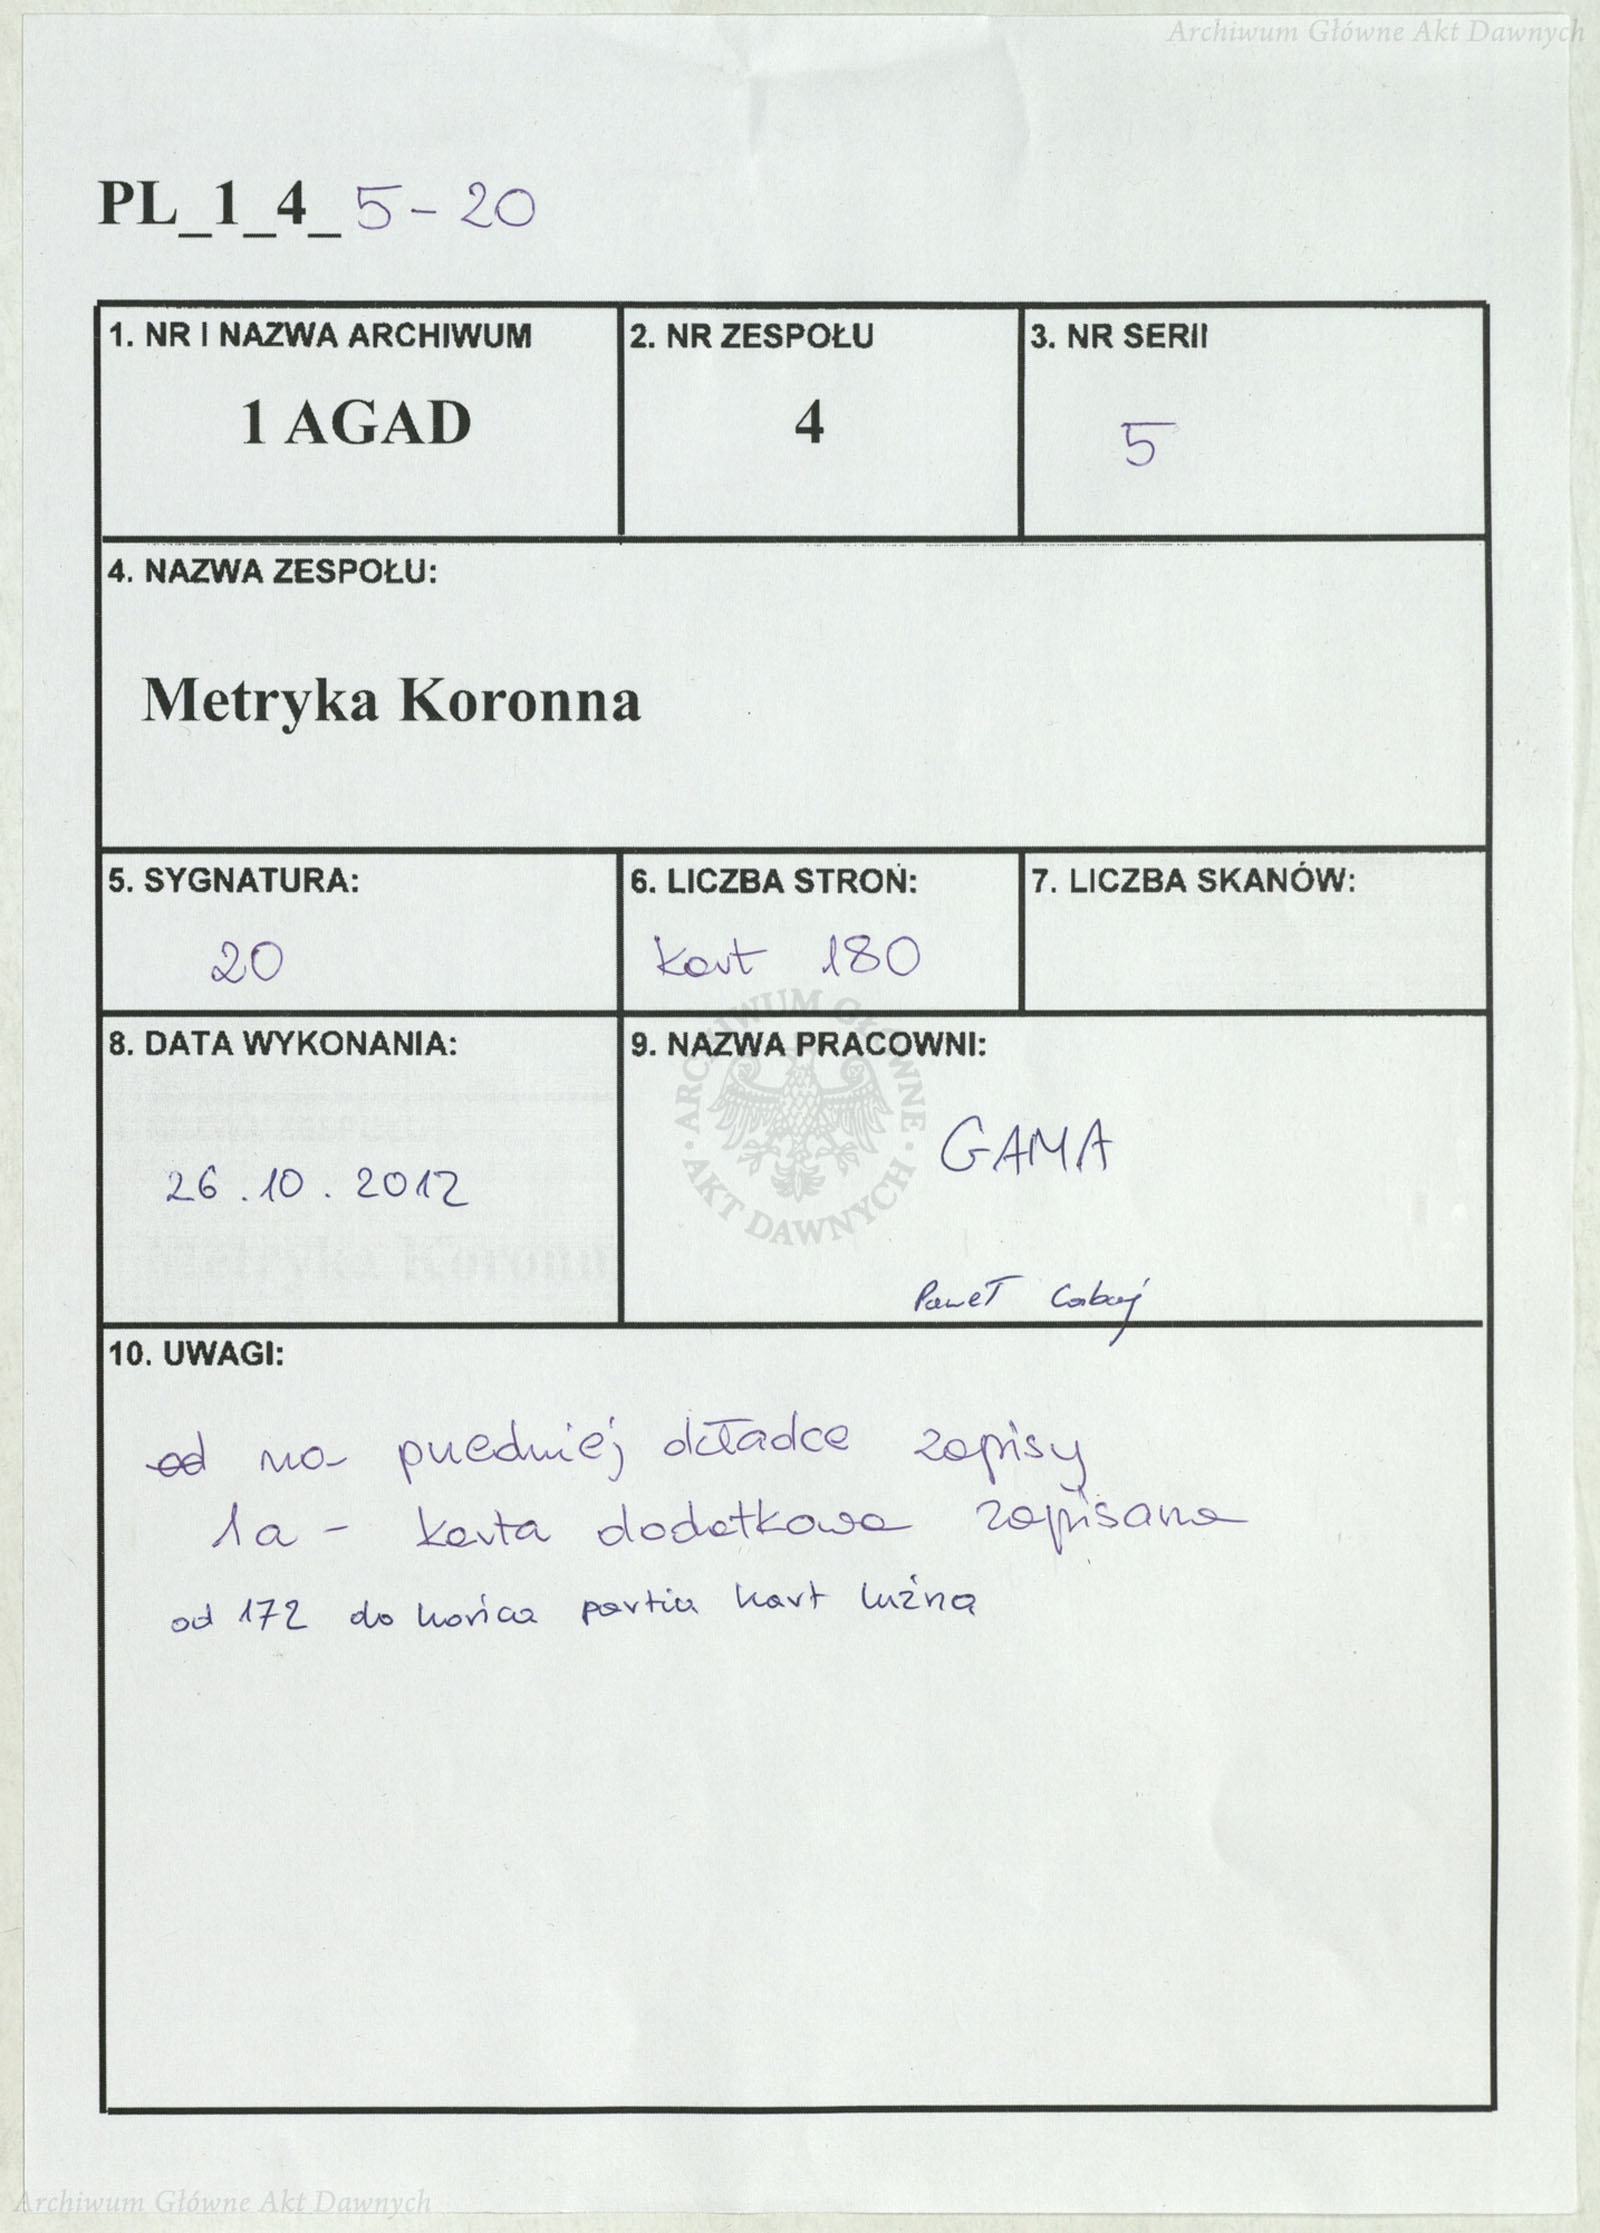 Archiwum Główne Akt Dawnych
PL_1_4_5-20
1. NR I NAZWA ARCHIWUM
1 AGAD
2. NR ZESPOŁU
4
3. NR SERII
5
4. NAZWA ZESPOŁU:
Metryka Koronna
5. SYGNATURA:
20
6. LICZBA STRON:
kart 180
7. LICZBA SKANÓW:
8. DATA WYKONANIA:
26.10.2012
9. NAZWA PRACOWNI:
GAMA
Paweł Cabaj
ARCHIWUM GŁÓWNE AKT DAWNYCH
10. UWAGI:
od na przedniej okładce zapisy
1a - karta dodatkowa zapisana
od 172 do końca partia kart luźna
Archiwum Główne Akt Dawnych